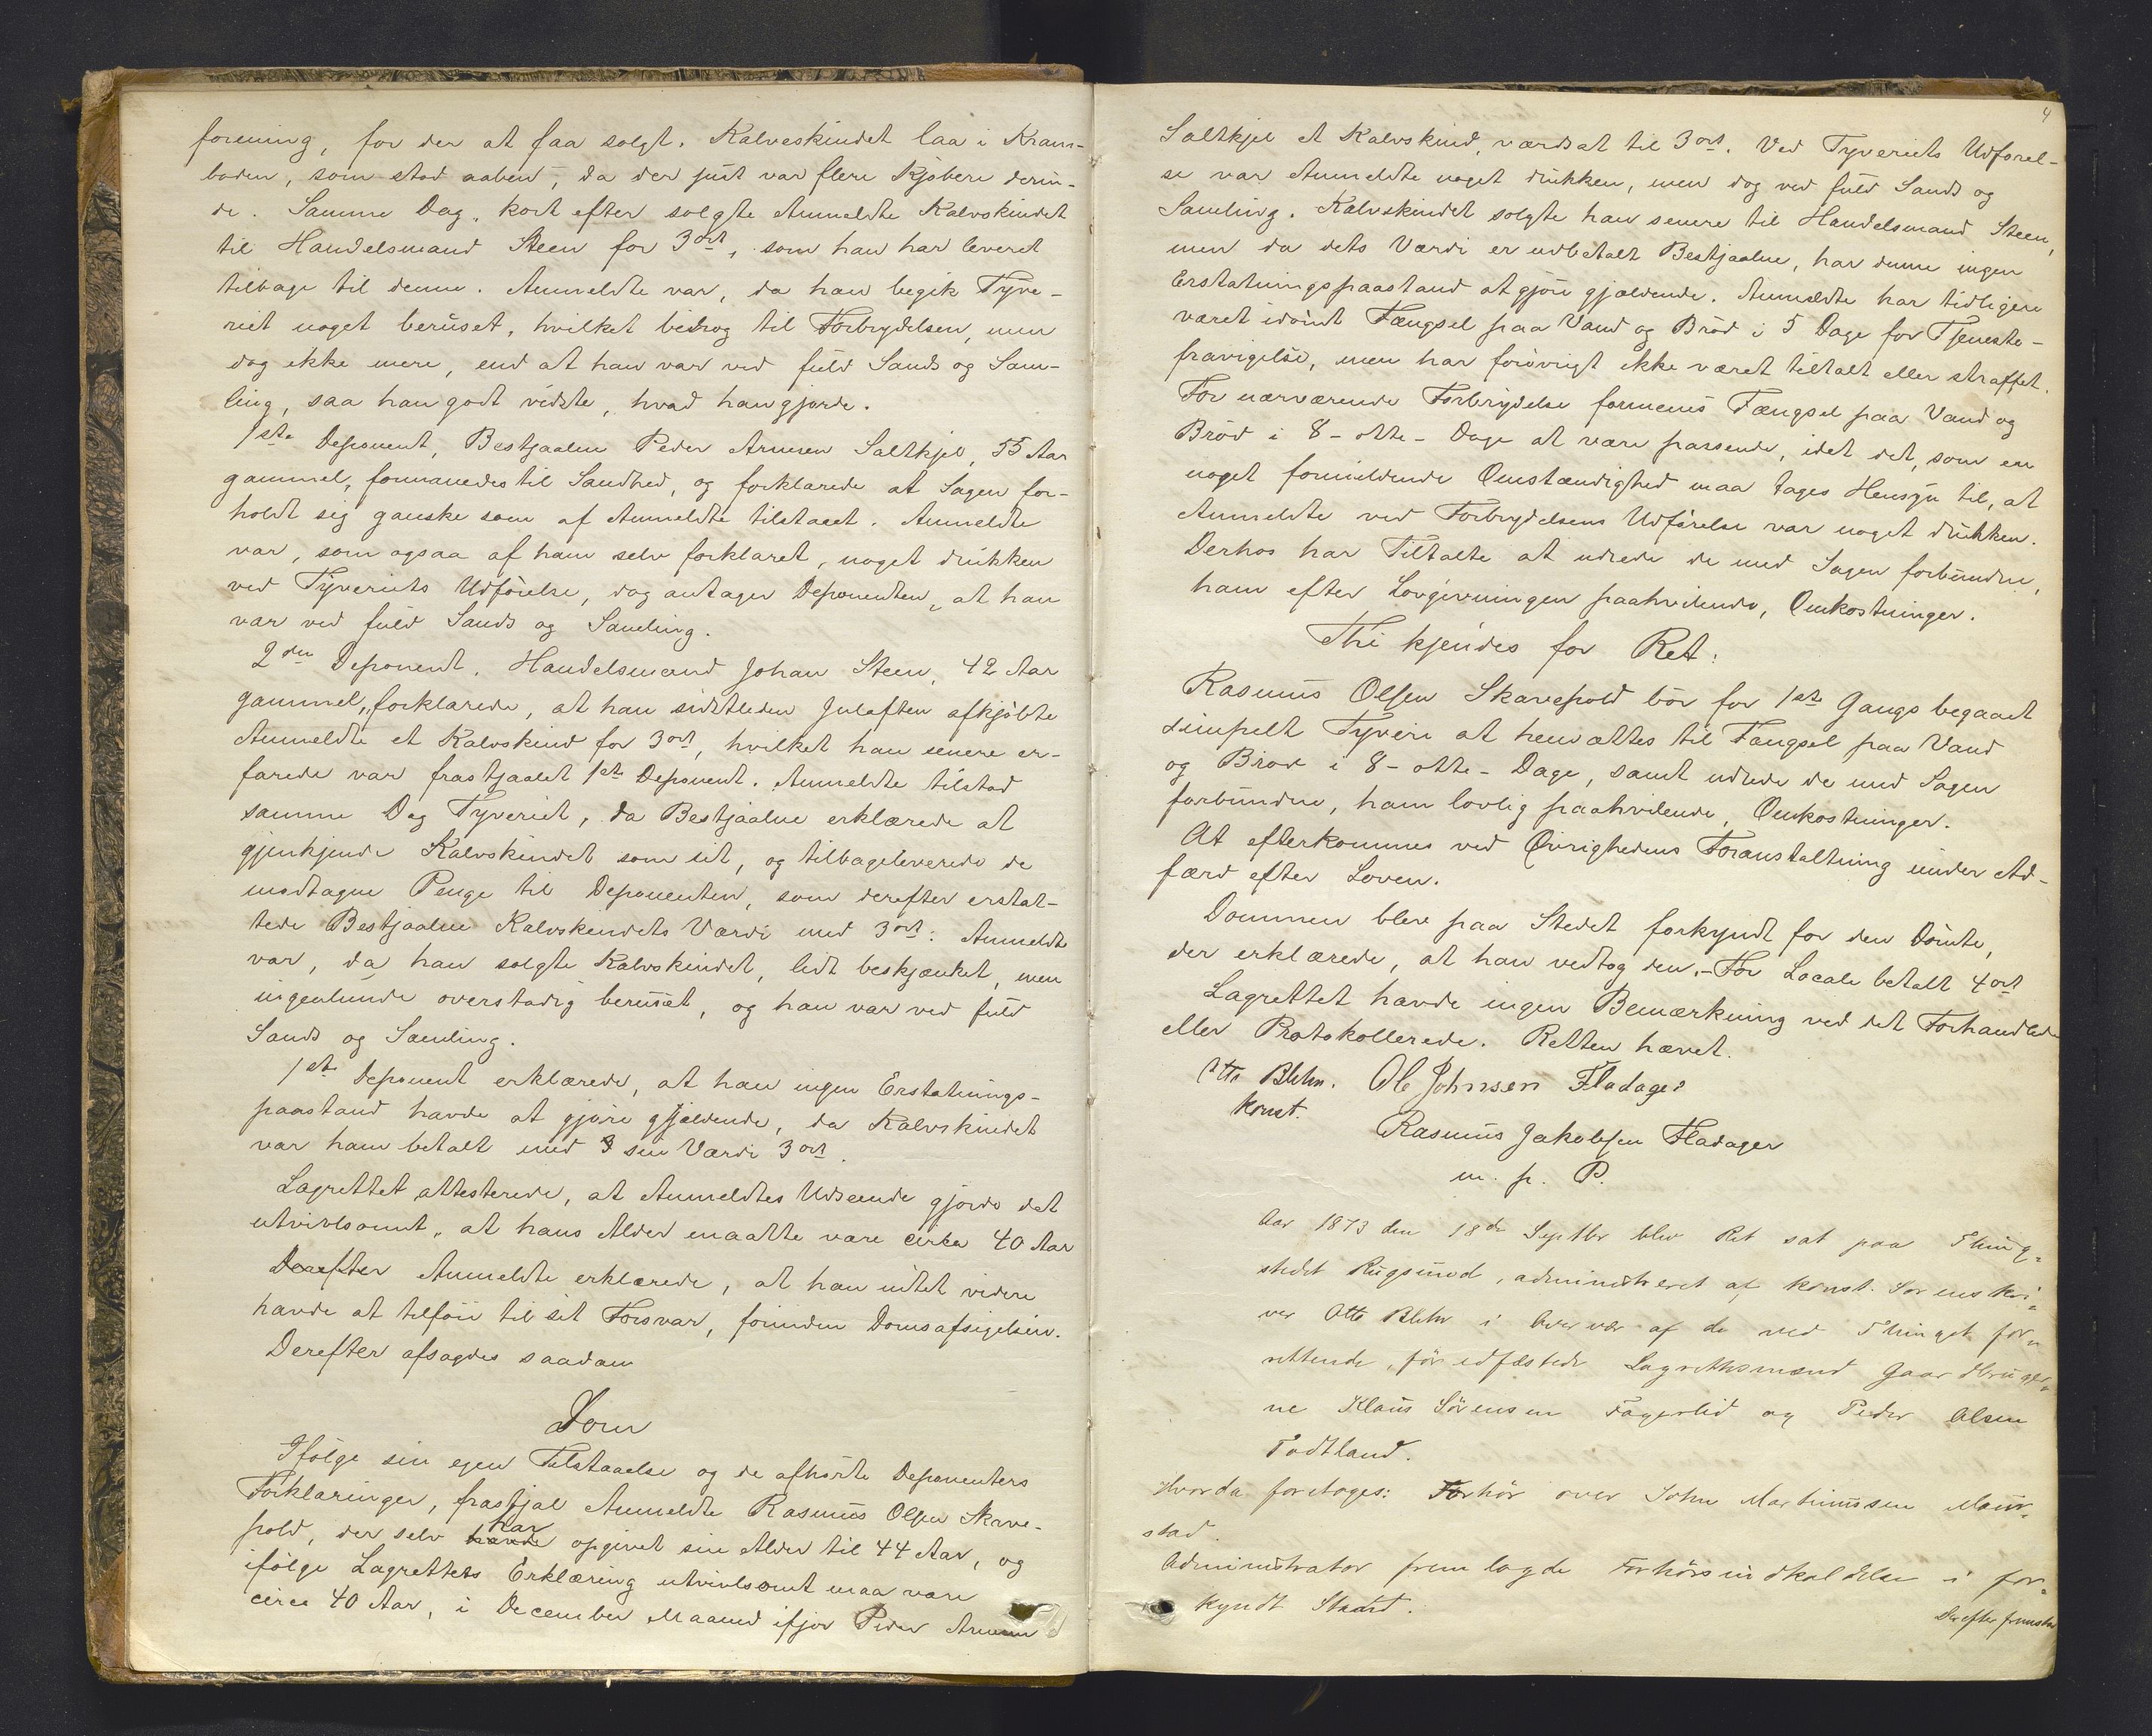 forening, for der at faa solgt. Kalveskindet laa i Kram-
boden, som stod aaben, da der just var flere Kjøbere derin-
de. Samme Dag, kort efter solgte Anmeldte Kalvskindet
til Handelsmand Steen for 3 ort, som han har leveret
tilbage til denne. Anmeldte var, da han begik Tyve-
riet noget beruset, hvilket bidrog til Forbrydelsen, men
dog ikke mere, end at han var ved fuld Sands og Sam-
ling, saa han godt vidste, hvad han gjorde.
1ste Deponent, Bestjaalne Peder Arnesen Saltkjel, 55 Aar
gammel, formanedes til Sandhed, og forklarede at Sagen for-
holdt sig ganske som af Anmeldte tilstaaet. Anmeldte
var, som ogsaa af ham selv forklaret, noget drukken
ved Tyveriets Udførelse, dog antager Deponenten, at han
var ved fuld Sands og Samling.
2den Deponent, Handelsmand Johan Steen, 42 Aar
gammel, forklarede, at han sidstleden Juleaften afkjøbte
Anmeldte et Kalvskind for 3 ort, hvilket han senere er-
farede var frastjaalet 1ste Deponent. Anmeldte tilstod
samme Dag Tyveriet, da Bestjaalne erklærede at
gjenkjende Kalvskindet som sit, og tilbageleverede de
modtagne Penge til Deponenten, som derefter erstat-
tede Bestjaalne Kalvskindets Værdi med 3 ort: Anmeldte
var, da han solgte Kalvskindet, lidt beskjænket, men
ingenlunde overstadig beruset, og han var ved fuld
Sands og Samling.
1ste Deponent erklærede, at han ingen Erstatnings-
paastand havde at gjøre gjældende, da Kalvskindet
var ham betalt med sin Værdi 3 ort.
Lagrettet attesterede, at Anmeldtes Udseende gjorde det
utvivlsomt, at hans Alder maatte være circa 40 Aar
Derefter Anmeldte erklærede, at han intet videre
havde at tilføie til sit Forsvar, forinden Domsafsigelsen.
Derefter afsagdes saadan
Dom
Ifølge sin egen Tilstaaelse og de afhørte Deponenters
Forklaringer, frastjal Anmeldte Rasmus Olsen Skave-
pold, der selv havde har opgivet sin Alder til 44 Aar, og
ifølge Lagrettets Erklæring utvivlsomt maa være
circa 40 Aar, i December Maaned ifjor Peder Arnesen
4
Saltkjel et Kalvskind, værdsat til 3 ort. Ved Tyveriets Udførel-
se var Anmeldte noget drukken, men dog ved fuld Sands og
Samling. Kalvskindet solgte han senere til Handelsmand Steen,
men da dets Værdi er udbetalt Bestjaalne, har denne ingen
Erstatningspaastand at gjøre gjældende. Anmeldte har tidligere
været idømt Fængsel paa Vand og Brød i 5 Dage for Tjeneste-
fravigelse, men har forøvrigt ikke været tiltalt eller straffet.
For nærværende Forbrydelse formenes Fængsel paa Vand og
Brød i 8 - otte - Dage at være passende, idet det, som en
noget formildende Omstændighed maa tages Hensyn til, at
Anmeldte ved Forbrydelsens Udførelse var noget drukken.
Derhos har Tiltalte at udrede de med Sagen forbundne,
ham efter Lovgivningen paahvilende, Omkostninger.
Thi kjendes for Ret:
Rasmus Olsen Skavepold bør for 1ste Gangs begaaet
simpelt Tyveri at hensættes til Fængsel paa Vand
og Brød i 8 - otte - Dage, samt udrede de med Sagen
forbundne, ham lovlig paahvilende, Omkostninger.
At efterkommes ved Øvrighedens Foranstaltning under Ad-
færd efter Loven.
Dommen blev paa Stedet forkyndt for den Dømte,
der erklærede, at han vedtog den. - For Locale betalt 4 ort
Lagrettet havde ingen Bemærkning ved det Forhandlede
eller Protokollerede. Retten hævet.
Otto Blehr. Ole Johnsen Fladager
konst.
Rasmus Jakobsen Fladager
m. p. P.
Aar 1873 den 18de Septbr blev Ret sat paa Thing-
stedet Rugsund, administreret af konst. Sorenskri-
ver Otto Blehr i Overvær af de ved Thinget for-
rettende, før edfæstede Lagrettesmænd Gaardbruger-
ne Klaus Sørensen Fagerlid og Peder Olsen
Todtland.
Hvorda foretoges: Forhør over John Martinussen Maur-
stad.
Administrator fremlagde Forhørsindkaldelse i for-
kyndt Stand.
Derefter fremstod